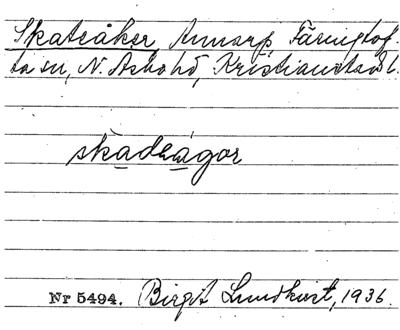 Skateåker, Annarp, Färingtof-
ta sn, N. Åsbo hd, Kristianstads l.
skadeågor
Nr 5494. Birgit Lundkvist, 1936.